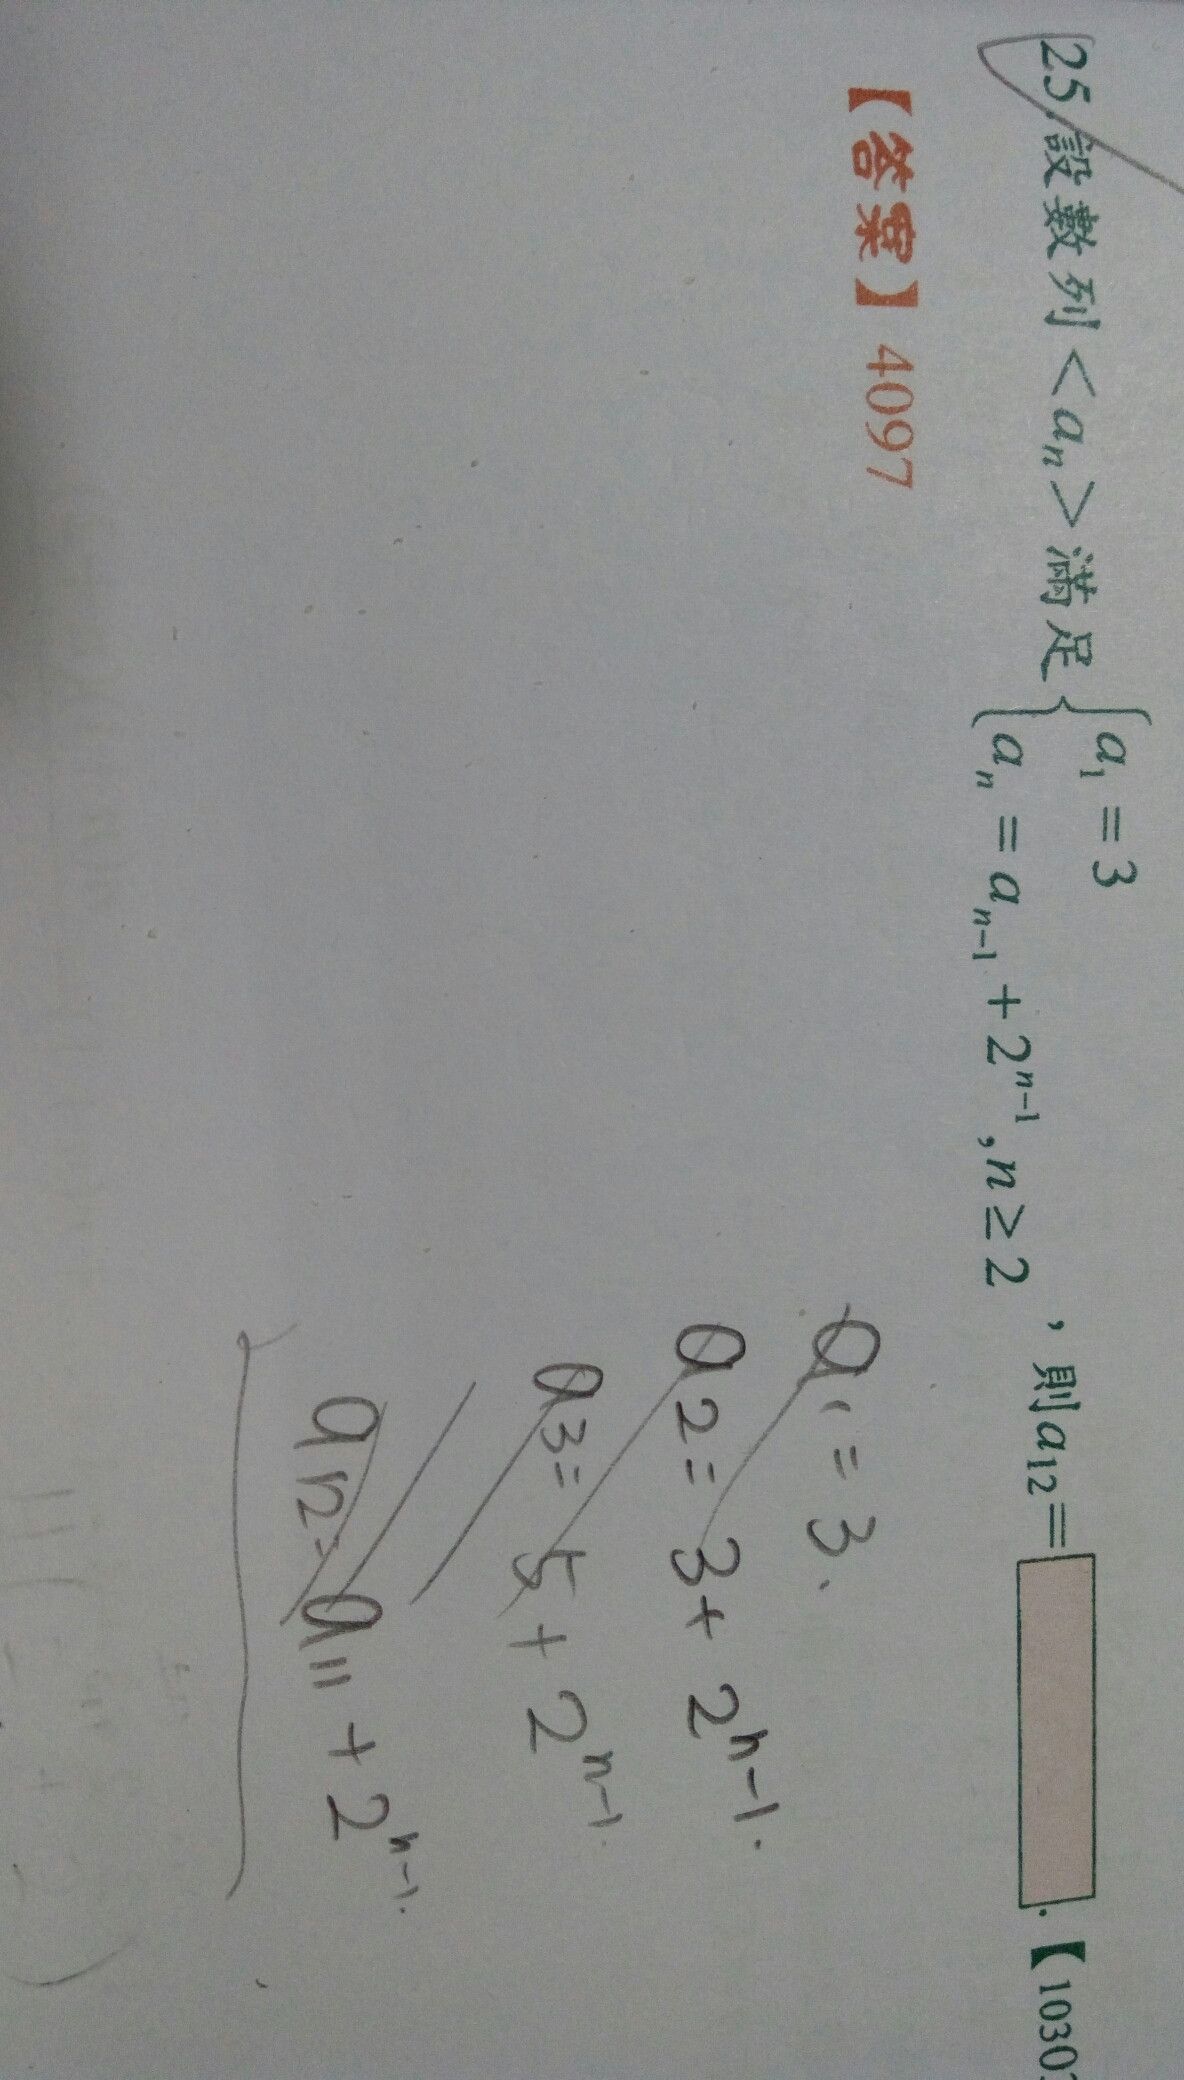 25.設數列<aₙ>滿足{a₁=3
aₙ=aₙ₋₁+2ⁿ⁻¹,n≥2 ,則a₁₂= .【103
【答案】4097
a₁=3.
a₂=3+2ⁿ⁻¹.
a₃=5+2ⁿ⁻¹.
a₁₂=a₁₁+2ⁿ⁻¹.